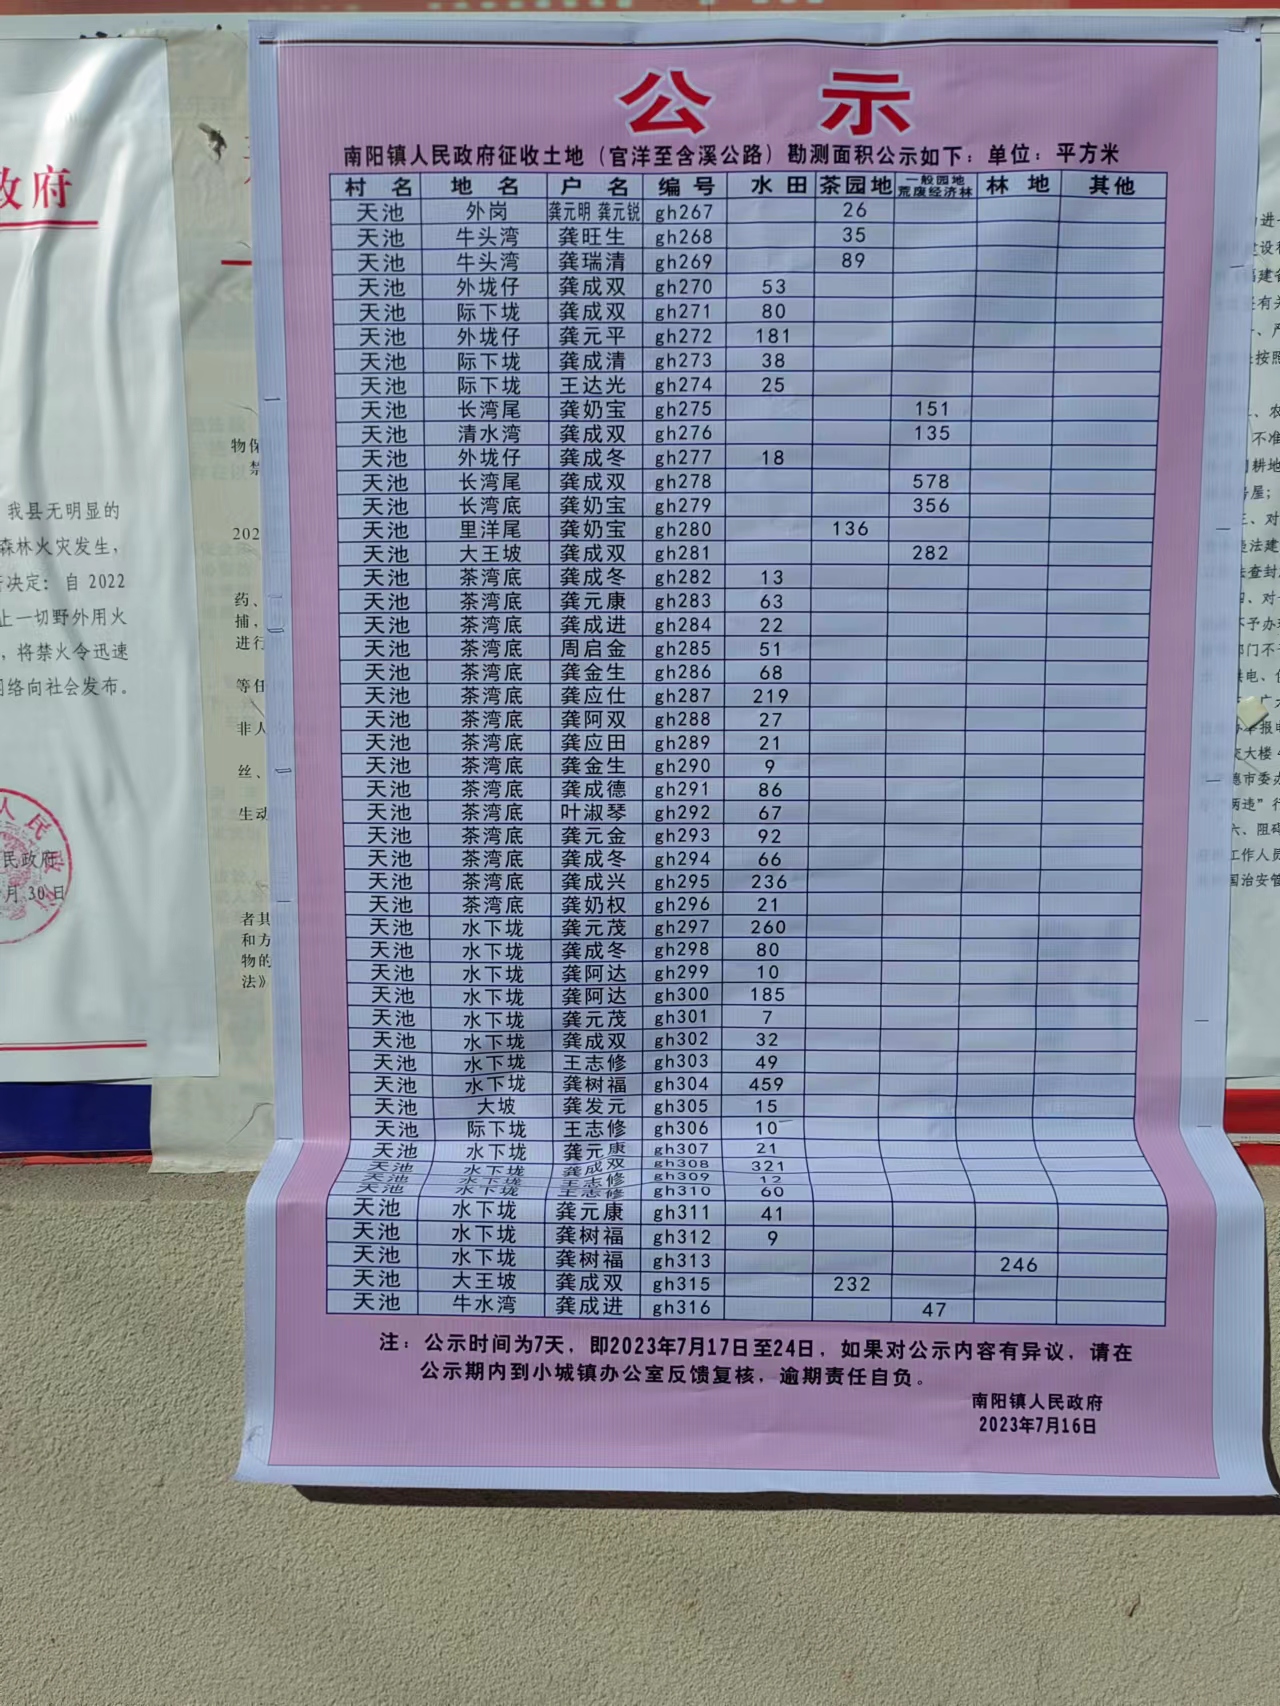 公 示
南阳镇人民政府征收土地（官洋至含溪公路）勘测面积公示如下：单位：平方米
村 名 地 名 户 名 编 号 水 田 茶园地 一般园地荒废经济林 林 地 其他
天池 外岗 龚元明 龚元锐 gh267 26
天池 牛头湾 龚旺生 gh268 35
天池 牛头湾 龚瑞清 gh269 89
天池 外垅仔 龚成双 gh270 53
天池 际下垅 龚成双 gh271 80
天池 外垅仔 龚元平 gh272 181
天池 际下垅 龚成清 gh273 38
天池 际下垅 王达光 gh274 25
天池 长湾尾 龚奶宝 gh275 151
天池 清水湾 龚成双 gh276 135
天池 外垅仔 龚成冬 gh277 18
天池 长湾尾 龚成双 gh278 578
天池 长湾底 龚奶宝 gh279 356
天池 里洋尾 龚奶宝 gh280 136
天池 大王坡 龚成双 gh281 282
天池 茶湾底 龚成冬 gh282 13
天池 茶湾底 龚元康 gh283 63
天池 茶湾底 龚成进 gh284 22
天池 茶湾底 周启金 gh285 51
天池 茶湾底 龚金生 gh286 68
天池 茶湾底 龚应仕 gh287 219
天池 茶湾底 龚阿双 gh288 27
天池 茶湾底 龚应田 gh289 21
天池 茶湾底 龚金生 gh290 9
天池 茶湾底 龚成德 gh291 86
天池 茶湾底 叶淑琴 gh292 67
天池 茶湾底 龚元金 gh293 92
天池 茶湾底 龚成冬 gh294 66
天池 茶湾底 龚成兴 gh295 236
天池 茶湾底 龚奶权 gh296 21
天池 水下垅 龚元茂 gh297 260
天池 水下垅 龚成冬 gh298 80
天池 水下垅 龚阿达 gh299 10
天池 水下垅 龚阿达 gh300 185
天池 水下垅 龚元茂 gh301 7
天池 水下垅 龚成双 gh302 32
天池 水下垅 王志修 gh303 49
天池 水下垅 龚树福 gh304 459
天池 大坡 龚发元 gh305 15
天池 际下垅 王志修 gh306 10
天池 水下垅 龚元康 gh307 21
天池 水下垅 龚成双 gh308 321
天池 水下垅 王志修 gh309 12
天池 水下垅 王志修 gh310 60
天池 水下垅 龚元康 gh311 41
天池 水下垅 龚树福 gh312 9
天池 水下垅 龚树福 gh313 246
天池 大王坡 龚成双 gh315 232
天池 牛水湾 龚成进 gh316 47
注：公示时间为7天，即2023年7月17日至24日，如果对公示内容有异议，请在
公示期内到小城镇办公室反馈复核，逾期责任自负。
南阳镇人民政府
2023年7月16日
政府
我县无明显的
森林火灾发生，
决定：自 2022
止一切野外用火
，将禁火令迅速
网络向社会发布。
人民政
民政府
月30日
物保
禁
202
药、
捕，
进行
等任
非人
丝、
生动
者其
和方
物的
法》
进一
建设
福建省
有关
、严
按照
、农
不准
耕地
房屋；
三、对
违法建
法查封
四、对
不予办理
部门不
供电、
广大
举报电
大楼
德市委办
“两违”行
六、阻碍
工作人员
国治安管